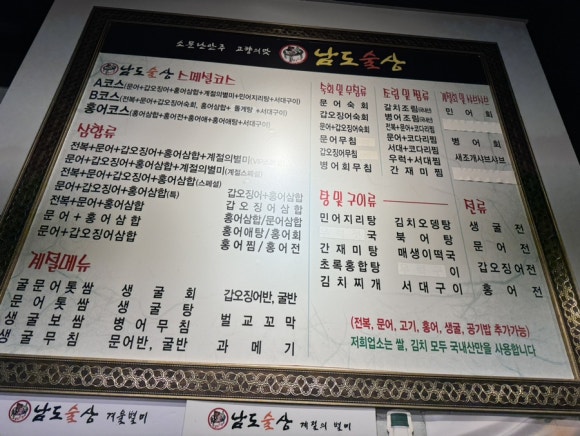 소문난안주 고향의맛 남도술상
남도술상 스페셜코스
A코스(문어+갑오징어+홍어삼합+계절의별미+민어지리탕+서대구이)
B코스(전복+문어+갑오징어숙회, 홍어삼합+ 통개탕 +서대구이)
홍어코스(홍어삼합+홍어전+홍어애+홍어애탕+서대구이)
삼합류
전복+문어+갑오징어+홍어삼합+계절의별미
문어+갑오징어+홍어삼합+계절의별미(계절스페셜)
전복+문어+갑오징어+홍어삼합(스페셜)
문어+갑오징어+홍어삼합(특)
전복+문어+홍어삼합
문어+홍어삼합
문어+갑오징어삼합
갑오징어+홍어삼합
갑오징어삼합
홍어삼합/문어삼합
홍어애탕/홍어회
홍어찜/홍어전
계절메뉴
굴문어톳쌈 생굴회 갑오징어반, 굴반
문어톳쌈 생굴탕
생굴보쌈 병어무침 벌교꼬막
생굴무침 문어반, 굴반 과메기
숙회 및 무침류
문어숙회
갑오징어숙회
문어+갑오징어숙회
문어무침
갑오징어무침
병어회무침
조림 및 찜류
갈치조림
병어조림
전복+문어+코다리찜
문어+코다리찜
서대+코다리찜
우럭+서대찜
간재미찜
계절회 및 샤브샤브
민어회
병어회
새조개샤브샤브
탕 및 구이류
민어지리탕 김치오뎅탕
국 북어탕
간재미탕 매생이떡국
초록홍합탕 이
김치찌개 서대구이
전류
생굴전
문어전
갑오징어전
홍어전
(전복, 문어, 고기, 홍어, 생굴, 공기밥 추가가능)
저희업소는 쌀, 김치 모두 국내산만을 사용합니다
남도술상 겨울별미
남도술상 계절의 별미